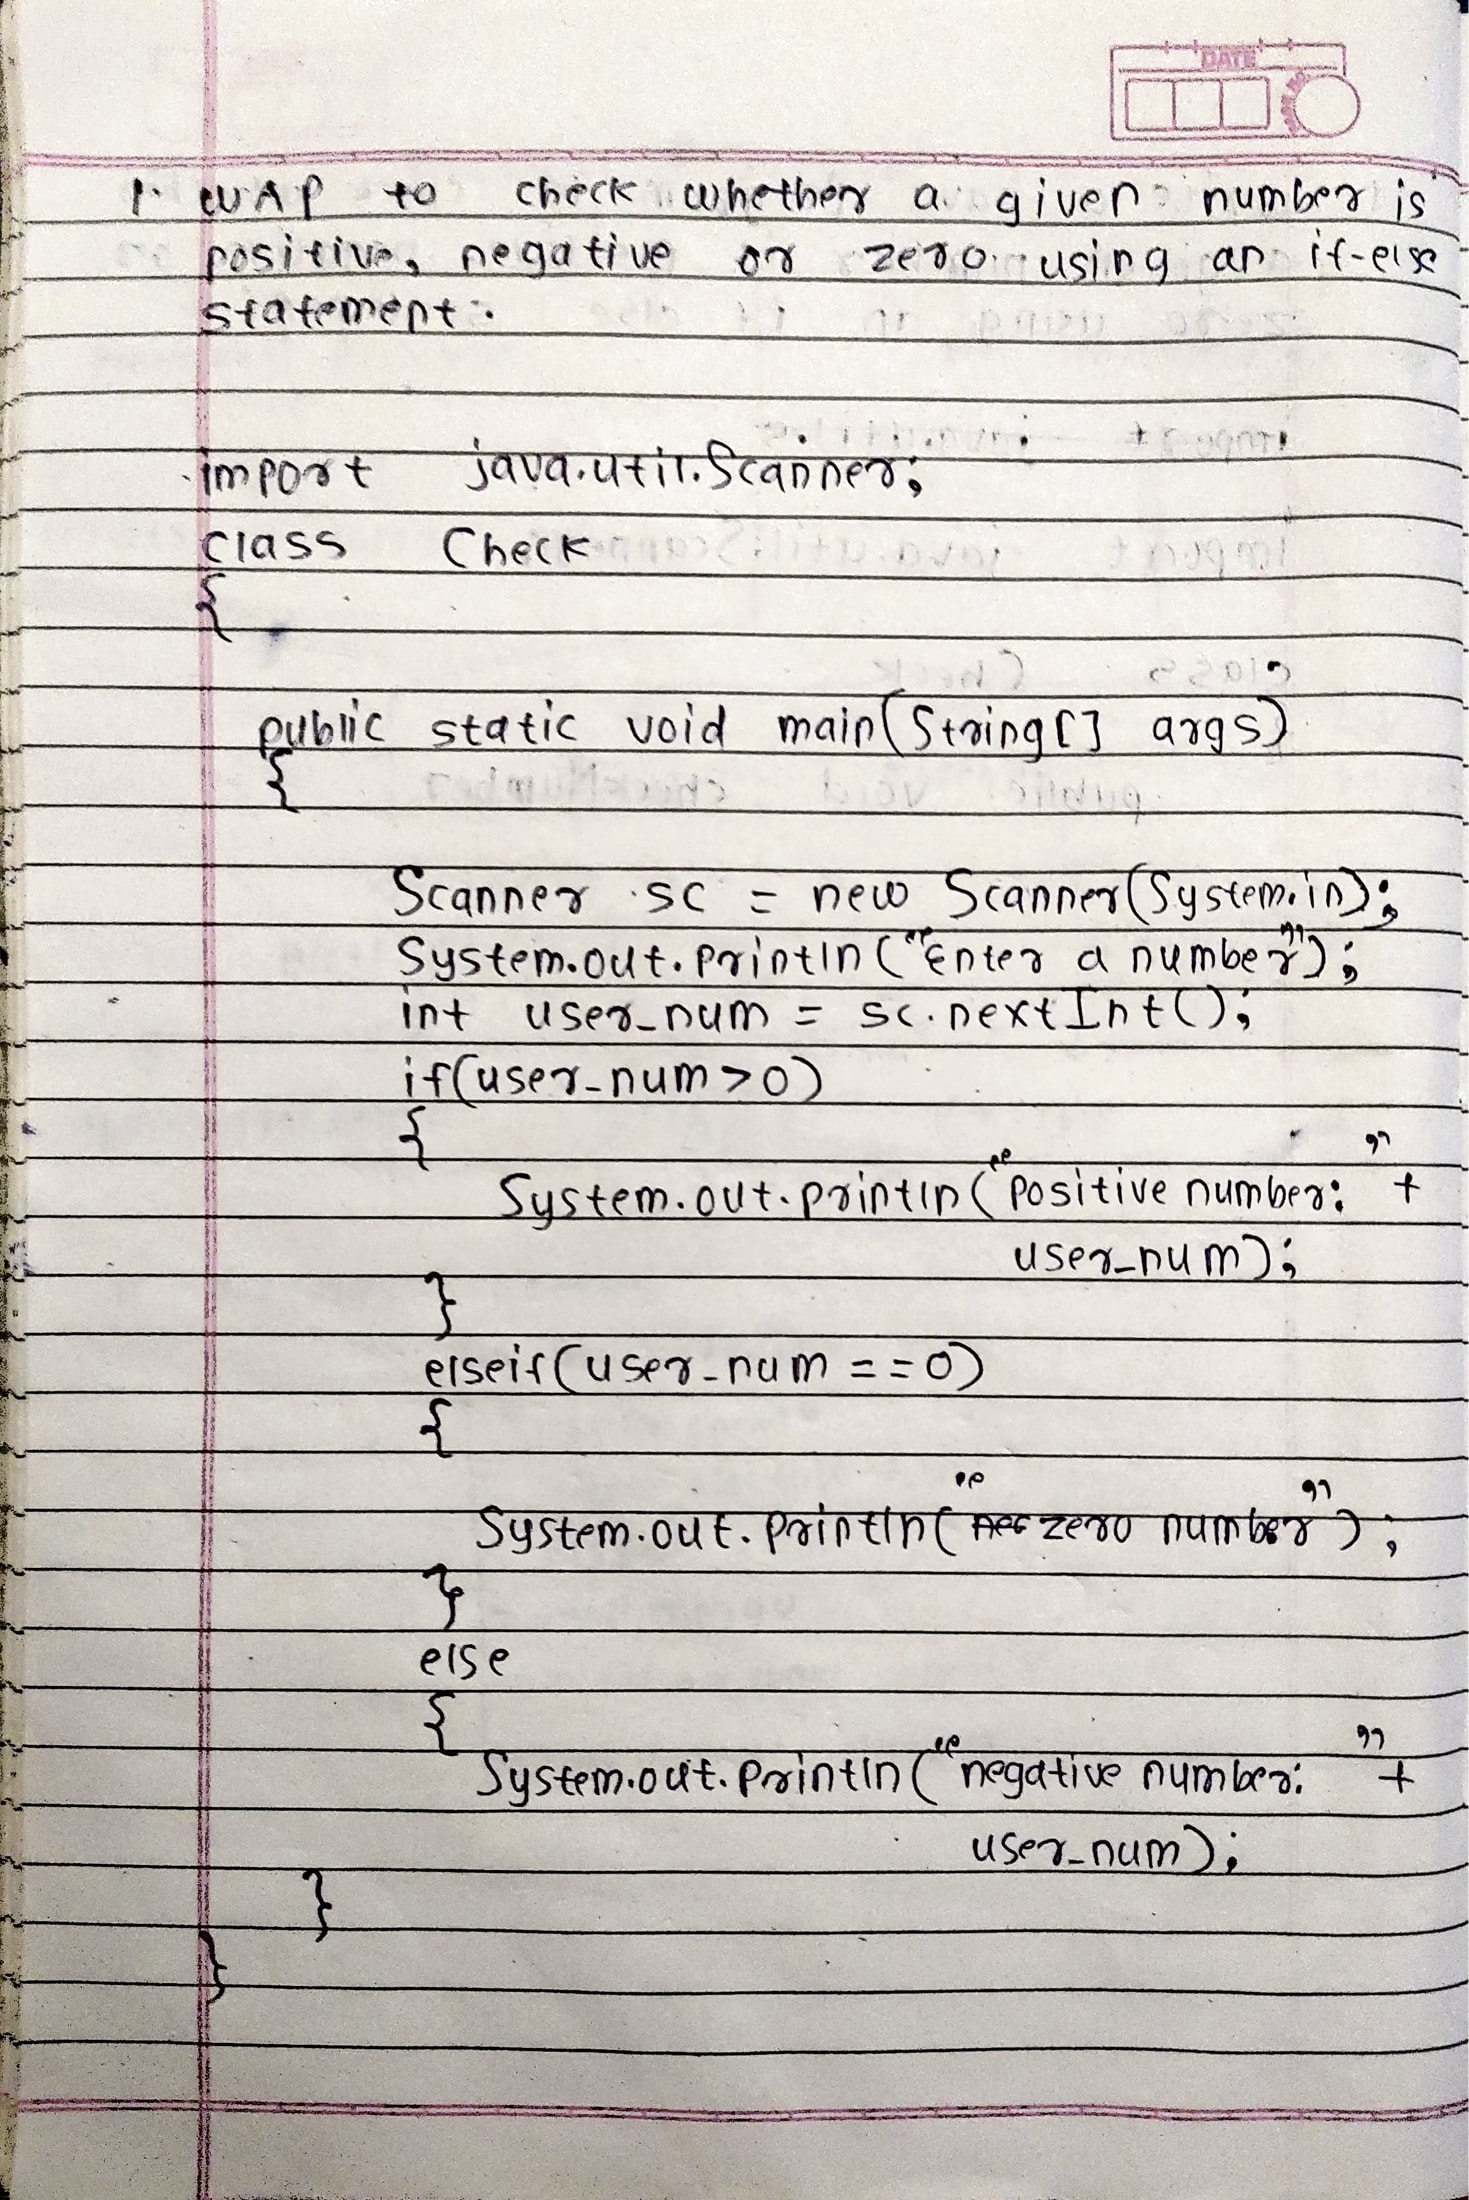 DATE
1. WAP to check whether a given number is
positive, negative or zero using an if-else
statement.
import java.util.Scanner;
class Check
{
public static void main(String[] args)
{
Scanner sc = new Scanner(System.in);
System.out.println("Enter a number");
int user_num = sc.nextInt();
if(user_num>0)
{
System.out.println("positive number: " +
user_num);
}
elseif(user_num ==0)
{
System.out.println("zero number");
}
else
{
System.out.println("negative number: " +
user_num);
}
}